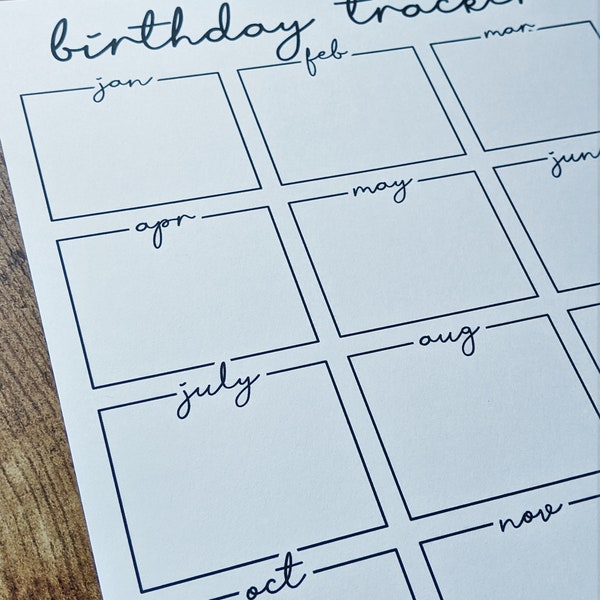 birthday tracker
jan feb mar
apr may jun
july aug
oct nov